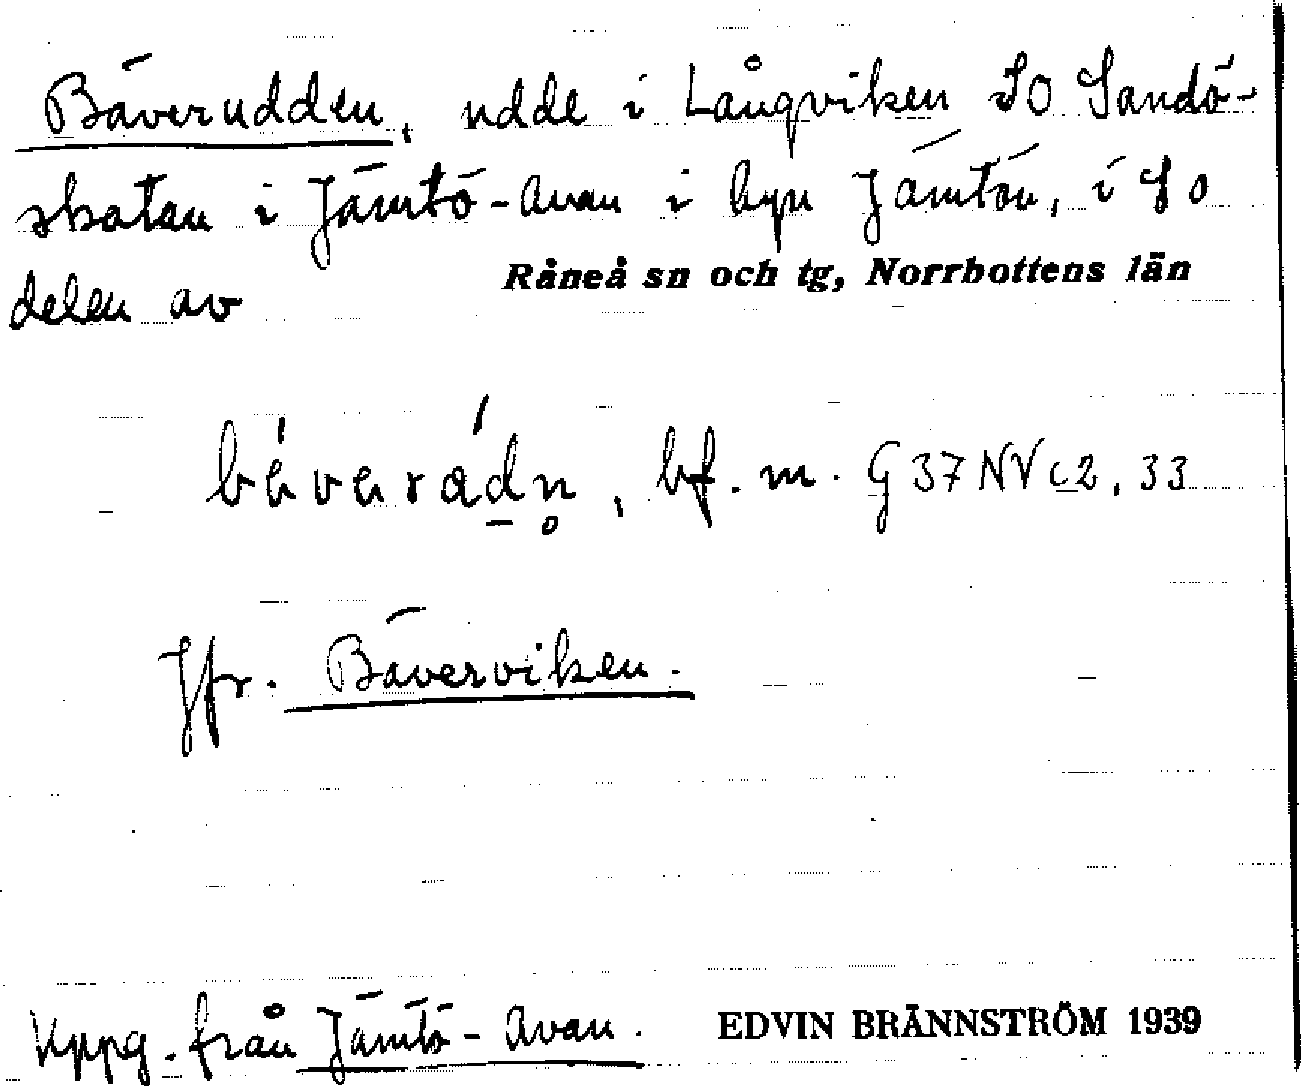 Bäverudden, udde i Långviken SO Sandö-
skatan i Jämtö-Avan i byn Jämtön, i SO
delen av Råneå sn och tg, Norrbottens län
bf. m. G 37 NV c2, 33
Jfr. Bäverviken.
Uppg. från Jämtö-Avan. EDVIN BRÄNNSTRÖM 1939